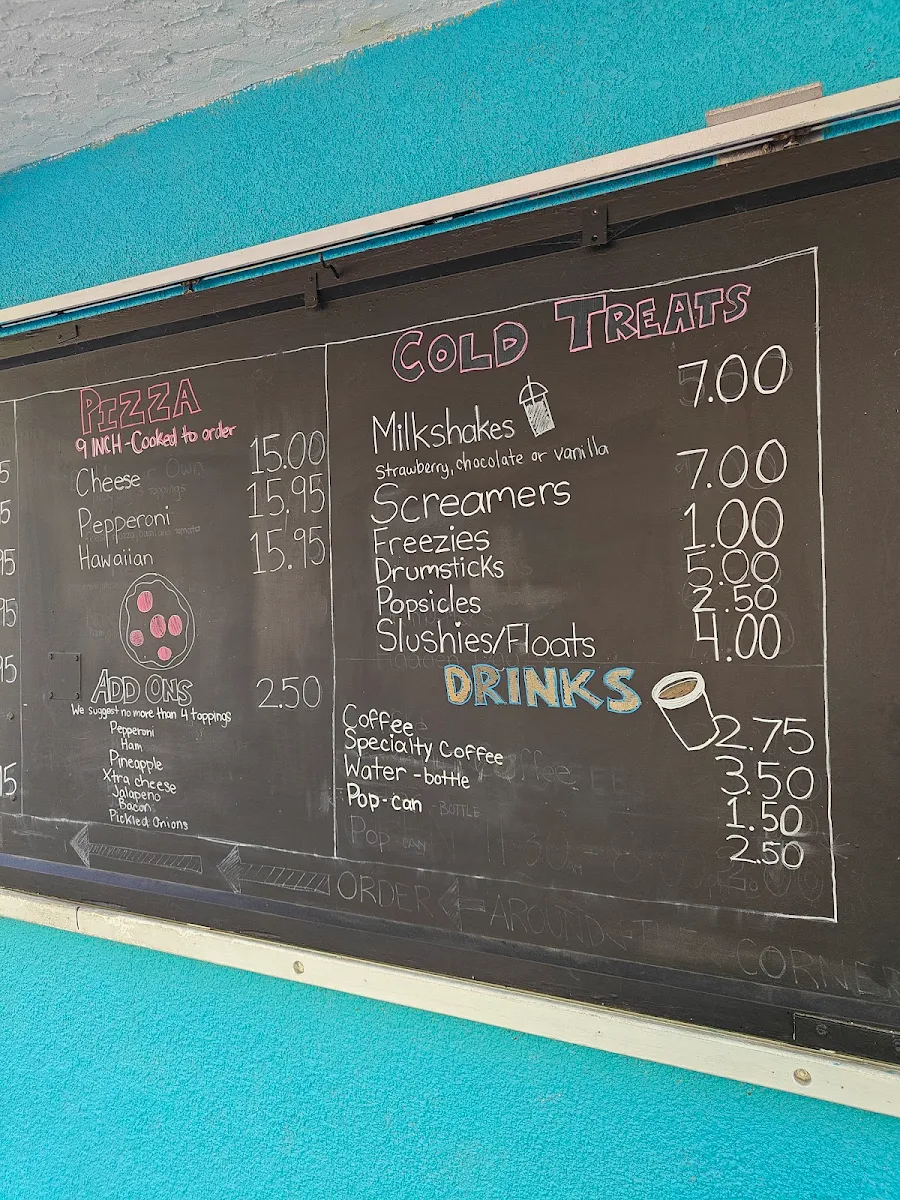 5
5
95
95
95
15
PIZZA
9 INCH - Cooked to order
Cheese 15.00
Pepperoni 15.95
Hawaiian 15.95
ADD ONS 2.50
We suggest no more than 4 toppings
Pepperoni
Ham
Pineapple
Xtra cheese
Jalapeno
Bacon
Pickled Onions
COLD TREATS
Milkshakes 7.00
Strawberry, chocolate or vanilla
Screamers 7.00
Freezies 1.00
Drumsticks 5.00
Popsicles 2.50
Slushies/Floats 4.00
DRINKS
Coffee 2.75
Specialty Coffee 3.50
Water - bottle 1.50
Pop - can 2.50
BOTTLE
Pop - CAN
ORDER AROUND THE CORNER